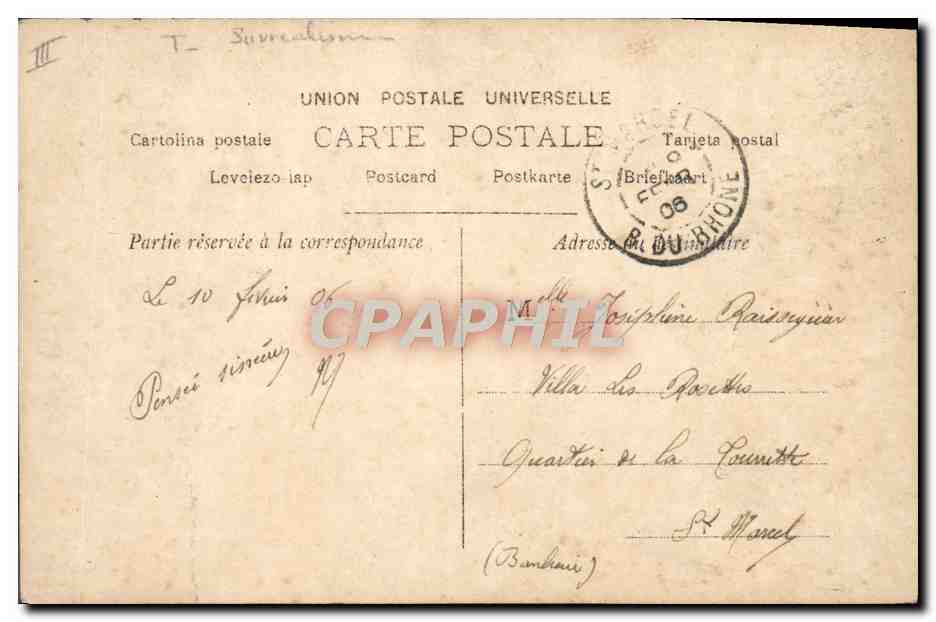 III
T_ Surrealisme
UNION POSTALE UNIVERSELLE
Cartolina postale CARTE POSTALE Tarjeta postal
Levelezo-lap Postcard Postkarte Briefkaart
ST MARCEL
06
B. DU RHONE
Partie réservée à la correspondance
Le 10 février 06
Pensée sincère
CPAPHIL
Adresse du destinataire
Melle Joséphine
Villa Les Rosettes
Quartier de la Tourrette
St Marcel